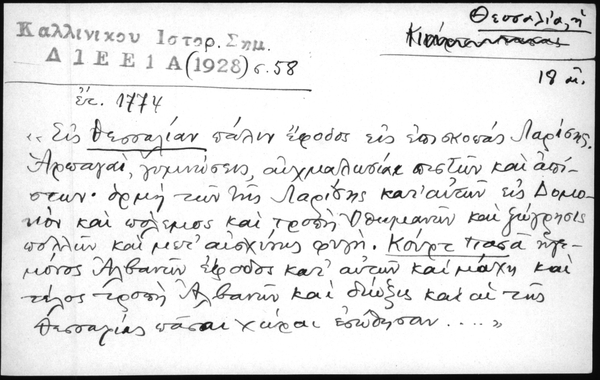 Θεσσαλία, ἡ
Καλλινικου Ιστορ. Σημ.
Δ Ι Ε Ε 1 Α (1928) σ. 58
18 αἰ.
ἔτ. 1774
"Εἰς Θεσσαλίαν πάλιν ἔφοδος εἰς ἐπισκοπὰς Λαρίσης.
Ἁρπαγαί, γυμνώσεις, αἰχμαλωσίαι πιστῶν καὶ ἀπί-
στων· ὁρμὴ τῶν τῆς Λαρίσης κατ' αὐτῶν εἰς Δομο-
κὸν καὶ πόλεμος καὶ τροπὴ Ὀθωμανῶν καὶ ζώγρησις
πολλῶν καὶ μετ' αἰσχύνης φυγή. Κούρτ πασᾶ ἡγε-
μόνος Ἀλβανῶν ἔφοδος κατ' αὐτῶν καὶ μάχη καὶ
τέλος τροπὴ Ἀλβανῶν καὶ δίωξις καὶ αἱ τῆς
Θεσσαλίας πᾶσαι χῶραι ἐσώθησαν ...."